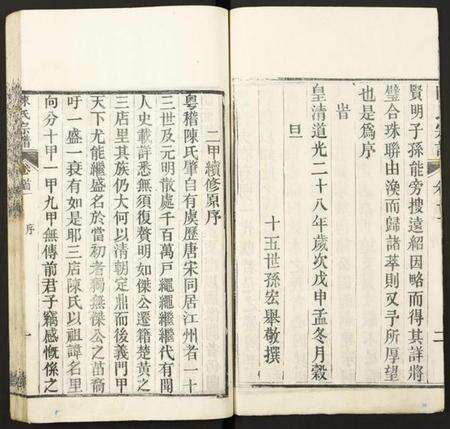 賢明子孫能旁搜遠紹因略而得其詳將
璧合珠聯由渙而歸諸萃則又予所厚望
也是爲序
峕
皇清道光二十八年歲次戊申孟冬月穀
旦
十五世孫宏舉敬撰
二甲續修原序
粤稽陳氏肇自有虞歷唐宋同居江州者一十
三世及元明散處千百萬戶繩繩繼繼代有聞
人史載詳悉無須復贅明如傑公遷籍楚黃之
三店里其族仍大何以清朝定鼎而後義門甲
天下尤能繼盛名於當初者獨無傑公之苗裔
吁一盛一衰有如是耶三店陳氏以祖諱名里
向分十甲一甲九甲無傳前君子竊感慨係之
陳氏宗譜
卷首
序
一